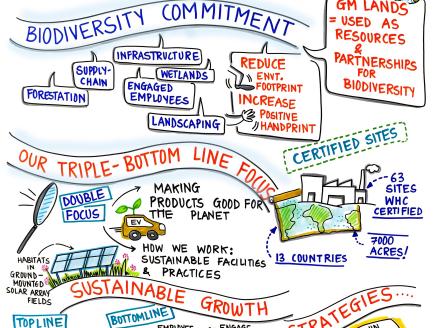 BIODIVERSITY COMMITMENT
GM LANDS
= USED AS
RESOURCES
&
PARTNERSHIPS
FOR
BIODIVERSITY
INFRASTRUCTURE
SUPPLY-
CHAIN
WETLANDS
FORESTATION
ENGAGED
EMPLOYEES
LANDSCAPING
REDUCE
ENVT.
FOOTPRINT
INCREASE
POSITIVE
HANDPRINT
CERTIFIED SITES
OUR TRIPLE-BOTTOM LINE FOCUS
DOUBLE
FOCUS
MAKING
PRODUCTS GOOD FOR
THE PLANET
EV
HOW WE WORK:
SUSTAINABLE FACILITIES
& PRACTICES
63
SITES
WHC
CERTIFIED
7000
ACRES!
13 COUNTRIES
HABITATS
IN
GROUND-
MOUNTED
SOLAR ARRAY
FIELDS
SUSTAINABLE GROWTH
STRATEGIES....
TOPLINE
BOTTOMLINE
ENGAGE